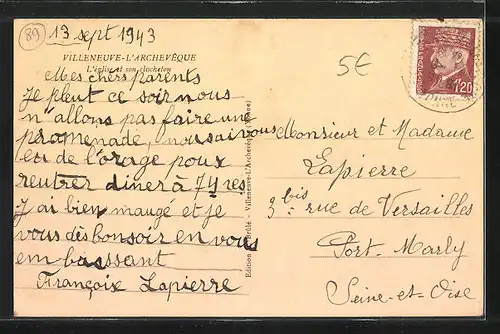 89
13 sept 1943
VILLENEUVE-L'ARCHEVÊQUE
L'église et son clocheton
5€
Mes chers parents
Je pleut ce soir nous
n'allons pas faire une
promenade, nous avous
eu de l'orage poux
rentrer diner à 7 H res
J ai bien mangé et je
vous dès bonsoir en vous
em bassant
Françoix Lapierre
Villeneuve-L'Archevêque
Edition
1f20
Monsieur et Madame
Lapierre
3 bis rue de Versailles
Port-Marly
Seine-et-Oise